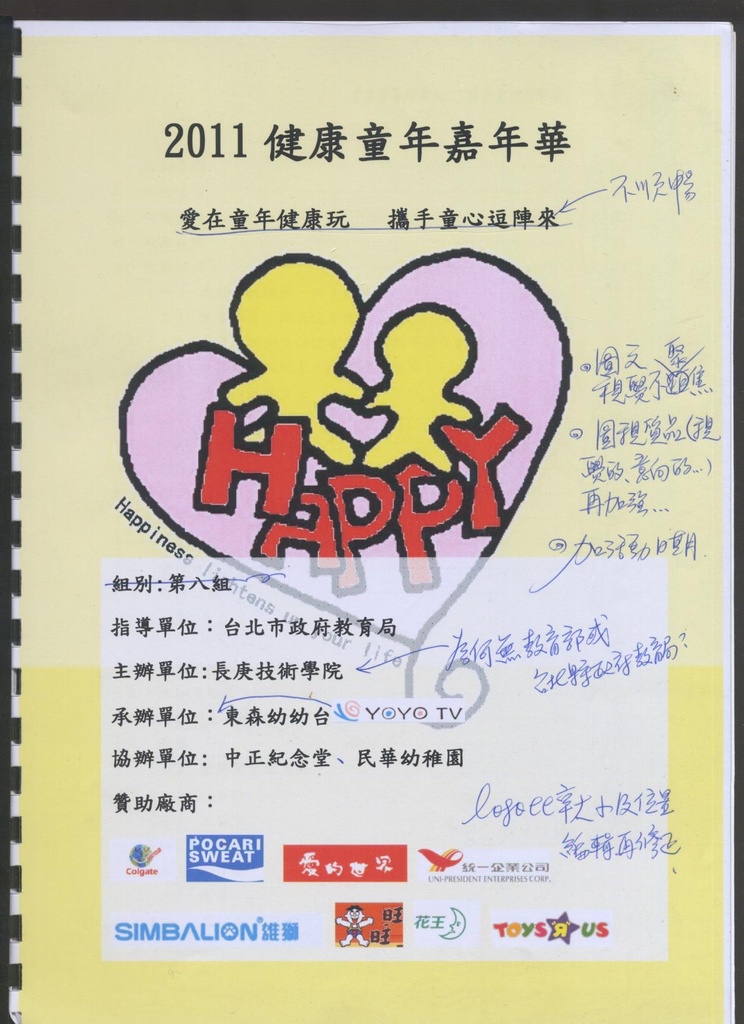 2011 健康童年嘉年華
不順暢
愛在童年健康玩 攜手童心逗陣來
HAPPY
Happiness lightens up your life
圖文 聚
視覺不 焦
圖視質品(視
覺的、意向的...)
再加強...
加活動日期.
組別:第八組
指導單位：台北市政府教育局
主辦單位:長庚技術學院
為何無教育部或
台北縣政府教育局?
承辦單位：東森幼幼台 YOYO TV
協辦單位: 中正紀念堂、民華幼稚園
贊助廠商：
logo 大小及位置
編輯再修
Colgate
POCARI
SWEAT
愛的世界
統一企業公司
UNI-PRESIDENT ENTERPRISES CORP.
SIMBALION 雄獅
旺旺
花王
TOYS R US